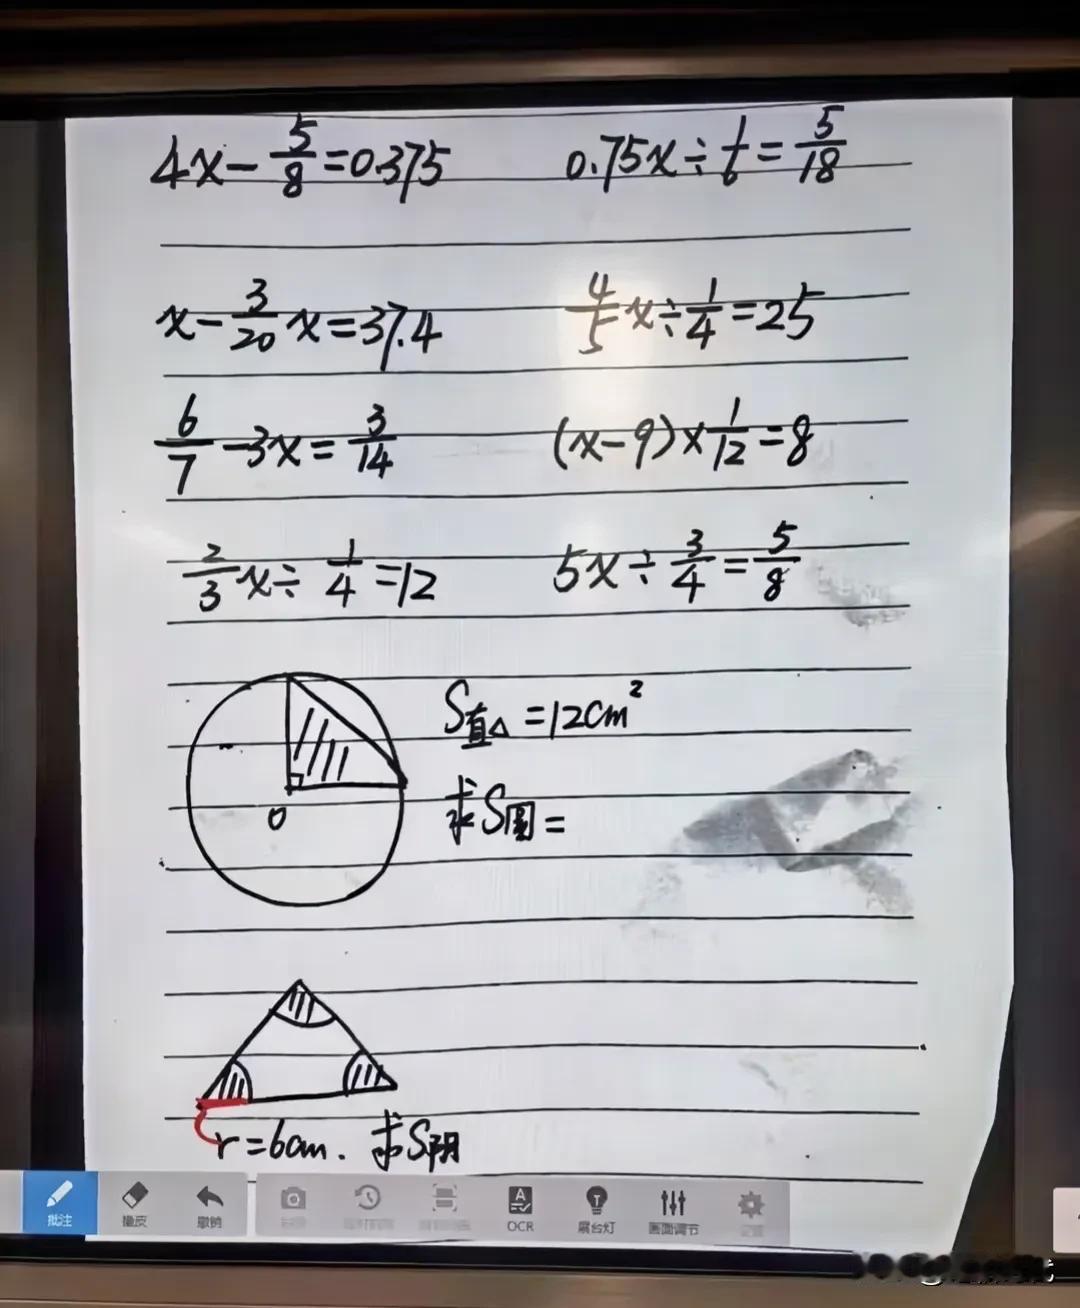 4x-5/8=0.375 0.75x÷1/6=5/18
x-3/20x=37.4 4/5x÷1/4=25
6/7-3x=3/14 (x-9)×1/12=8
2/3x÷1/4=12 5x÷3/4=5/8
S直△=12cm²
求S圆=
O
r=6cm. 求S阴
批注 橡皮 撤销 OCR 展台灯 画面调节